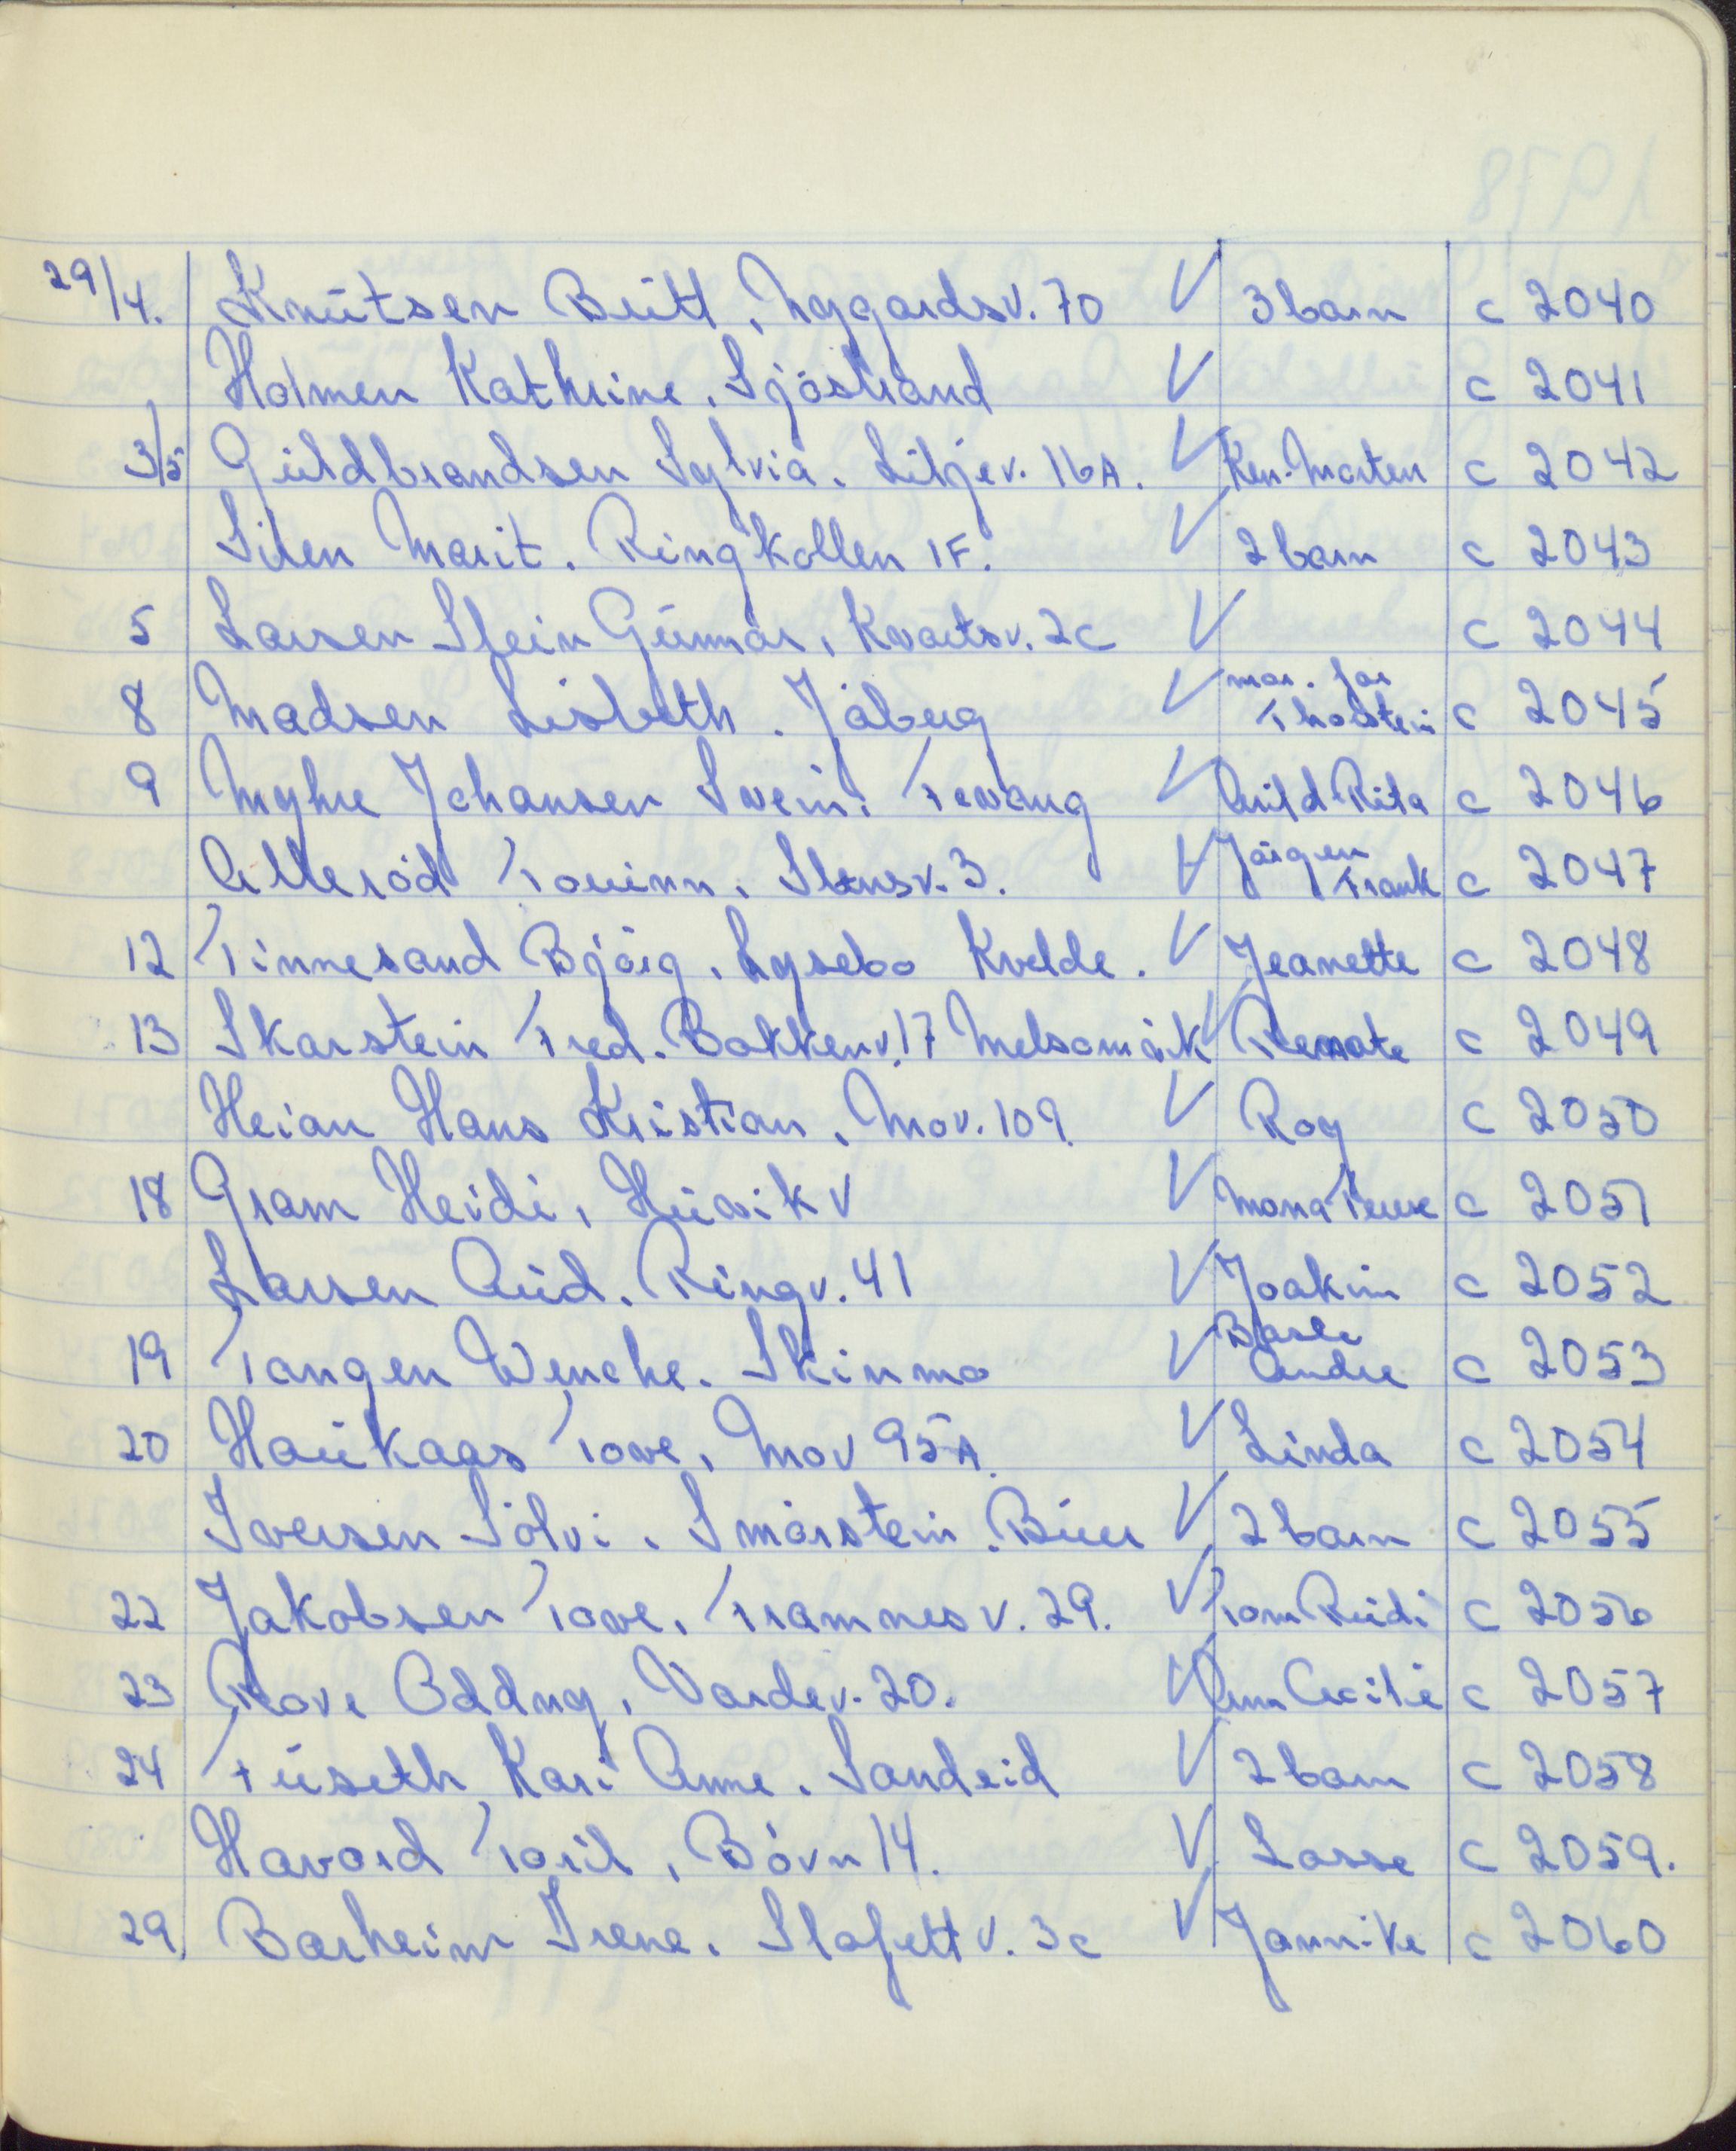 29/4. Knutsen Britt, Nygardsv. 70 V 3 barn c 2040
Holmen Kathrine. Sjöstrand V c 2041
3/5 Guldbrandsen Sylvia. Liljev. 16A. V Ken-Morten c 2042
Silen Marit. Ringkollen 1F. V 2 barn c 2043
5 Larsen Stein Gunnar, Kvartsv. 2c V c 2044
8 Madsen Lisbeth. Jåberg V mor. far Thorstein c 2045
9 Myhre Johansen Svein. Tevang V Arild-Rita c 2046
Allerød Tovinn. Stensv. 3. V Jörgen Frank c 2047
12 Finnesand Björg, Lysebo Kvelde. V Jeanette c 2048
13 Skarstein Fred. Bakkenv. 17 Melsomvik V Renate c 2049
Heian Hans Kristian, Mov. 109. V Roy c 2050
18 Gram Heidi, V Mona Terese c 2051
Larsen Aud. Ringv. 41 V Joakim c 2052
19 Tangen Wenche. Skinmo V Andre c 2053
20 Haukaas Tove, Mov 95A. V Linda c 2054
Iversen Sölvi. Smørstein. V 2 barn c 2055
22 Jakobsen Tove, Framnesv. 29. V Tom c 2056
23 Rove Oddny, Vardev. 20. V Ann Cecilie c 2057
24 Fuseth Kari Anne. Sandeid V 2 barn c 2058
Havard Toril, Bøvn 14. V Lasse c 2059.
29 Barheim Irene. Stafettv. 3c V Jannike c 2060